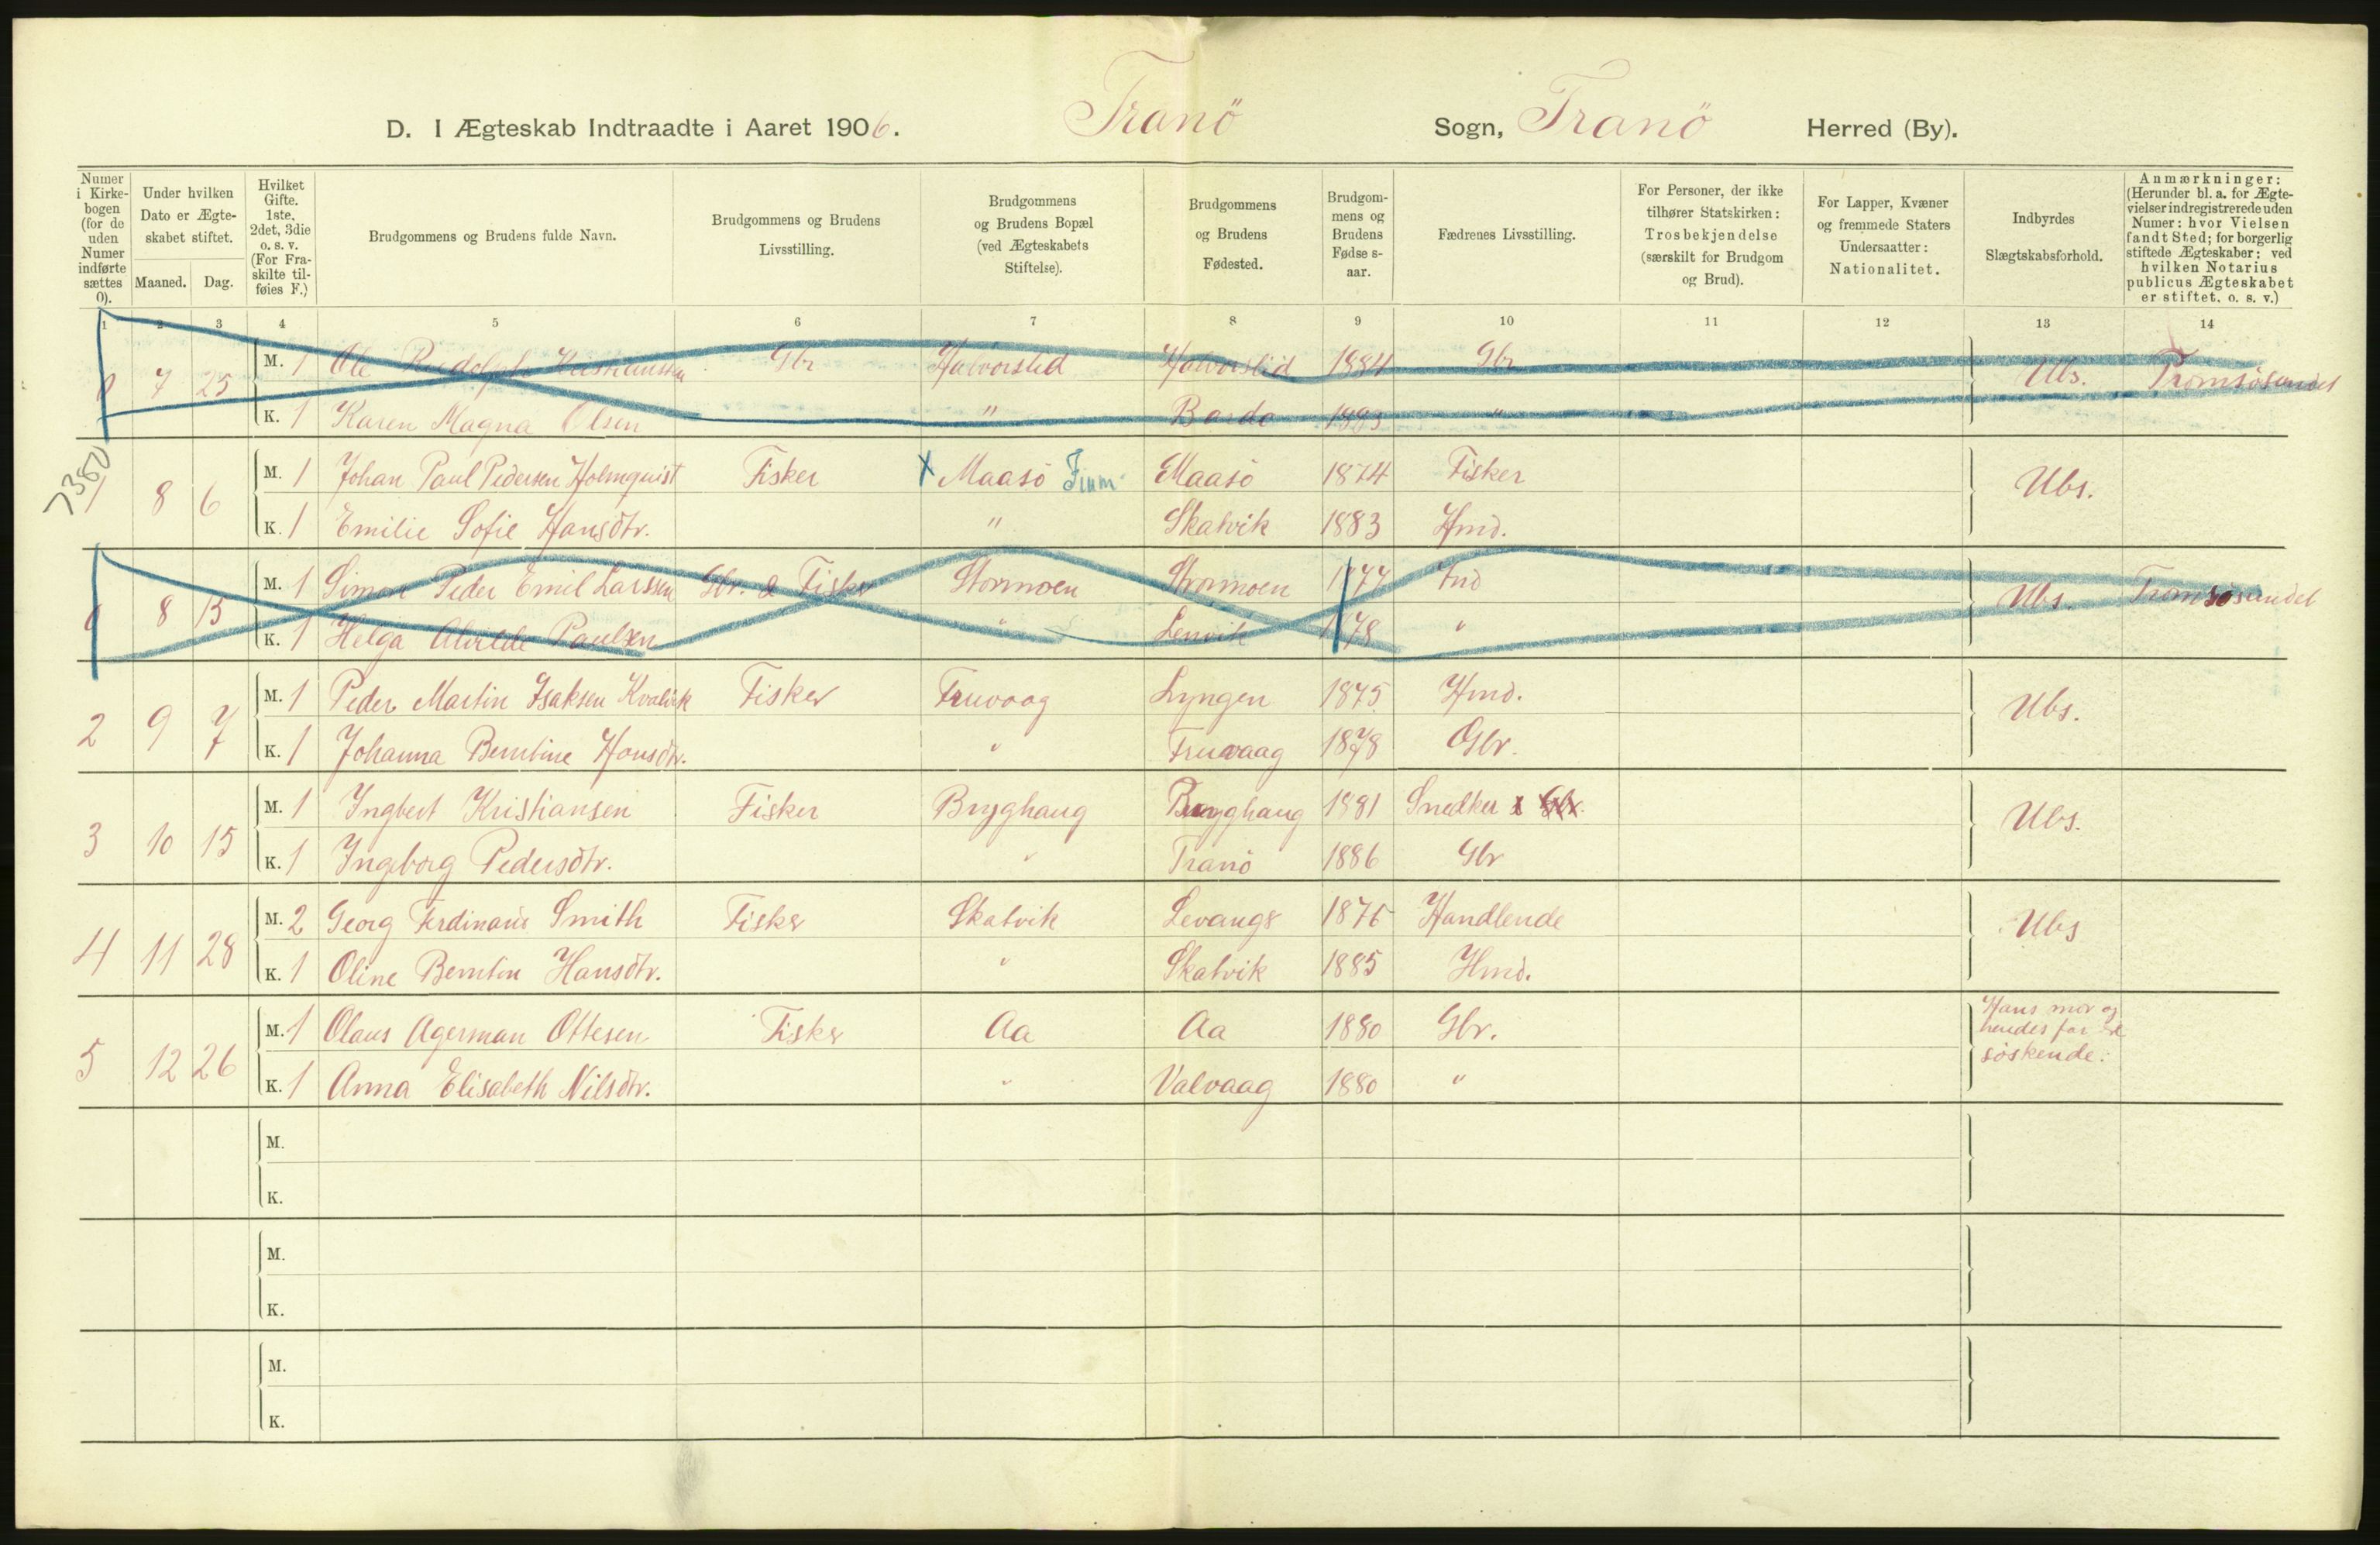 D. I Ægteskab Indtraadte i Aaret 1906. Tranö Sogn, Tranö Herred (By).
Numer i Kirkebogen (for de uden Numer indførte sættes 0).
Under hvilken Dato er Ægteskabet stiftet.
Maaned. Dag.
Hvilket Gifte. 1ste, 2det, 3die o. s. v. (For Fraskilte tilføies F.)
Brudgommens og Brudens fulde Navn.
Brudgommens og Brudens Livsstilling.
Brudgommens og Brudens Bopæl (ved Ægteskabets Stiftelse).
Brudgommens og Brudens Fødested.
Brudgommens og Brudens Fødselsaar.
Fædrenes Livsstilling.
For Personer, der ikke tilhører Statskirken: Trosbekjendelse (særskilt for Brudgom og Brud).
For Lapper, Kvæner og fremmede Staters Undersaatter: Nationalitet.
Indbyrdes Slægtskabsforhold.
Anmærkninger: (Herunder bl. a. for Ægtevielser indregistrerede uden Numer: hvor Vielsen fandt Sted; for borgerlig stiftede Ægteskaber: ved hvilken Notarius publicus Ægteskabet er stiftet. o. s. v.)
1 2 3 4 5 6 7 8 9 10 11 12 13 14
0 7 25 M. 1 Ole Rudolph Kristiansen Gbr Halvorslid Halvorslid 1884 Gbr Ubs. Tromsösundet
K. 1 Karen Magna Olsen " Bardo "
7380
1 8 6 M. 1 Johan Paul Pedersen Holmquist Fisker x Maasö Finm. Maasö 1874 Fisker Ubs.
K. 1 Emilie Sofie Hansdtr. " Skatvik 1883 Hmd.
0 8 15 M. 1 Simon Peder Emil Larssen Gbr. & Fisker Stormoen Stormoen 1877 Ind Ubs. Tromsösundet
K. 1 Helga Alvilde Paulsen " Lenvik 1878 "
2 9 7 M. 1 Peder Martin Isaksen Kvalvik Fisker Fruvaag Lyngen 1875 Hmd. Ubs.
K. 1 Johanna Berntine Hansdtr. " Fruvaag 1878 Gbr.
3 10 15 M. 1 Ingbert Kristiansen Fisker Bryghaug Bryghaug 1881 Snedker & Gbr. Ubs.
K. 1 Ingeborg Pedersdtr. " Tranö 1886 Gbr
4 11 28 M. 2 Georg Ferdinand Smith Fisker Skatvik Levanger 1876 Handlende Ubs
K. 1 Oline Berntin Hansdtr. " Skatvik 1885 Hmd.
5 12 26 M. 1 Olaus Agerman Ottesen Fisker Aa Aa 1880 Gbr. Hans mor og
hendes far
söskende.
K. 1 Anna Elisabeth Nilsdtr. " Valvaag 1880 "
M.
K.
M.
K.
M.
K.